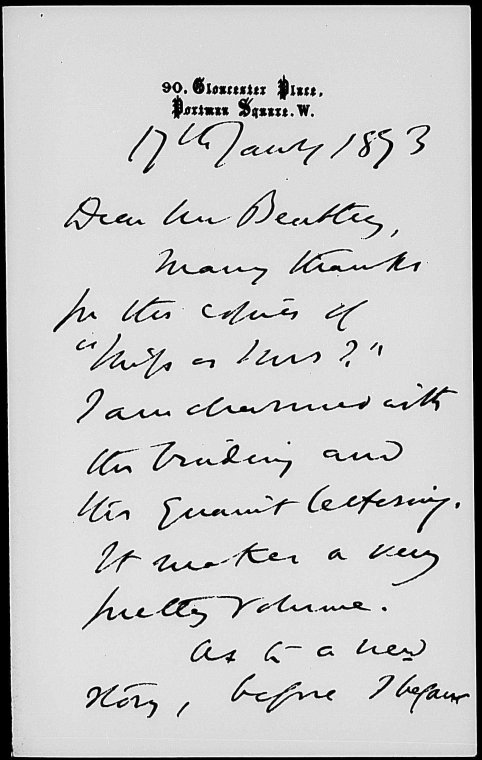 90, Gloucester Place,
Portman Square. W.
17th Jany 1893
Dear Mr Bentley,
Many thanks
for the copies of
"Miss or Mrs?"
I am charmed with
the binding and
the quaint lettering.
It makes a very
pretty volume.
As to a new
story, before I